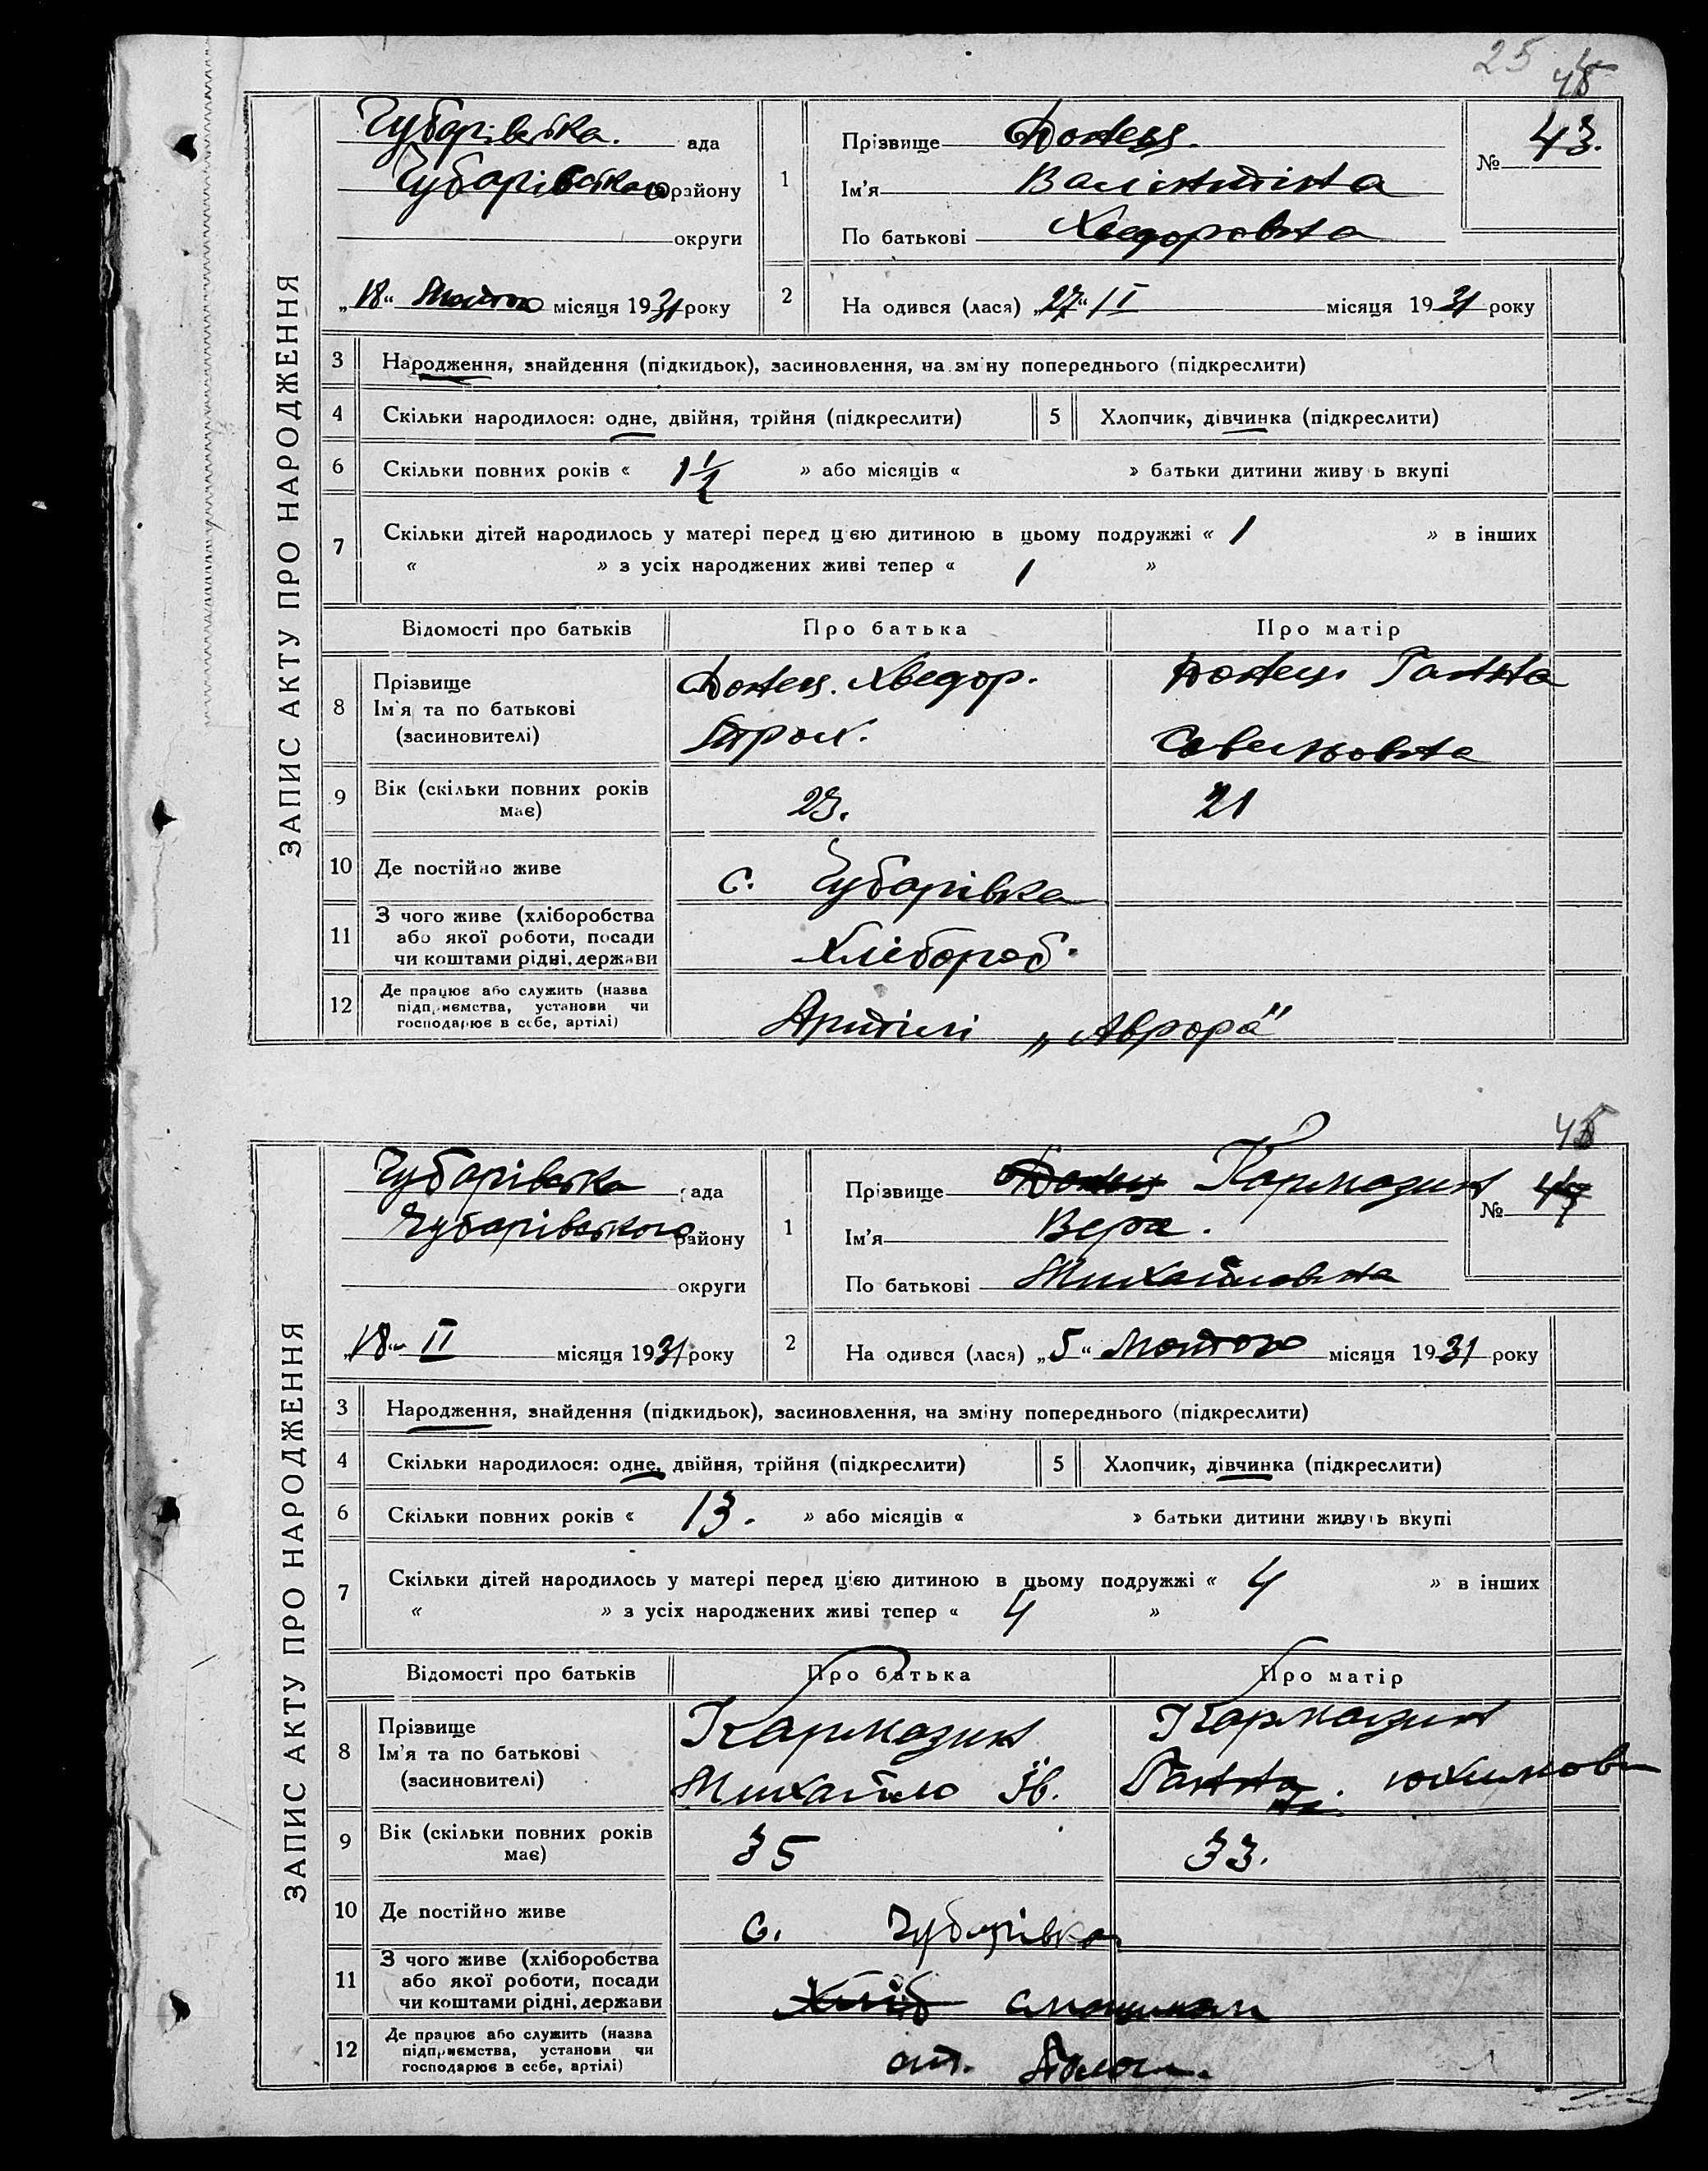 25
ЗАПИС АКТУ ПРО НАРОДЖЕННЯ
Чубарівська. ада
Чубарівського району
округи
„18“ Лютого місяця 1931 року
1
Прізвище Донець.
Ім'я Валінтіна
По батькові Хведоровна
№ 43.
2
На одився (лася) „27“ / І місяця 1931 року
3 Народження, знайдення (підкидьок), засиновлення, на зм ну попереднього (підкреслити)
4 Скільки народилося: одне, двійня, трійня (підкреслити) 5 Хлопчик, дівчинка (підкреслити)
6 Скільки повних років « 1 1/2 » або місяців « » батьки дитини живу ь вкупі
7 Скільки дітей народилось у матері перед цією дитиною в цьому подружжі « 1 » в інших
« » з усіх народжених живі тепер « 1 »
Відомості про батьків Про батька Про матір
8 Прізвище
Ім'я та по батькові
(засиновителі)
Донець. Хведор.
Донець Ганна
Савельовна
9 Вік (скільки повних років
має)
23. 21
10 Де постійно живе с. Чубарівка
11 З чого живе (хліборобства
або якої роботи, посади
чи коштами рідні, держави
Хлібороб.
12 Де працює або служить (назва
підприємства, установи чи
господарює в себе, артілі)
Артілі „Аврора“
45
ЗАПИС АКТУ ПРО НАРОДЖЕННЯ
Чубарівська ада
Чубарівського району
округи
„18“ ІІ місяця 1931 року
1
Прізвище Донець Кармазин
Ім'я Вера.
По батькові Михайловна
№
2
На одився (лася) „5“ Лютого місяця 1931 року
3 Народження, знайдення (підкидьок), засиновлення, на зміну попереднього (підкреслити)
4 Скільки народилося: одне, двійня, трійня (підкреслити) 5 Хлопчик, дівчинка (підкреслити)
6 Скільки повних років « 13. » або місяців « » батьки дитини живуть вкупі
7 Скільки дітей народилось у матері перед цією дитиною в цьому подружжі « 4 » в інших
« » з усіх народжених живі тепер « 4 »
Відомості про батьків Про батька Про матір
8 Прізвище
Ім'я та по батькові
(засиновителі)
Кармазин
Михайло Ів.
Кармазин
Ганна Юхимов
9 Вік (скільки повних років
має)
35 33.
10 Де постійно живе с. Чубарівка
11 З чого живе (хліборобства
або якої роботи, посади
чи коштами рідні, держави
Хліб
12 Де працює або служить (назва
підприємства, установи чи
господарює в себе, артілі)